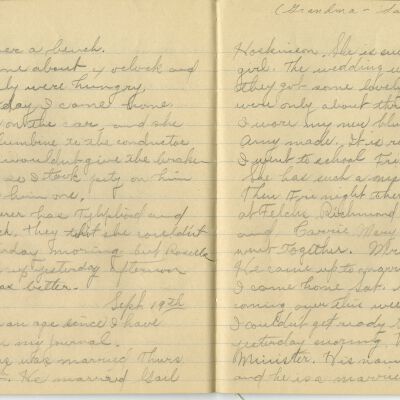 er a bench.
me about 4 oclock and
ly were hungry.
day, I came home
on the car, and she
lumbine to the conductor
wouldnt give the braken
so I took pity on him
him one.
rer has Typhoid and
ck, they that she couldn't
rday morning but Rosella
yesterday afternoon
as better.
Sept. 19th
an age since I have
in my journal.
was married Thurs
He married Gail
(Grandma - Da
Hoskinson. She is su
girl. The wedding w
they got some lovely
were only about thi
I wore my new blu
Amy made. It is r
I went to school Fri
She has such a
Then Fri night ther
at Richmond
and Carrie May
went together. Mr.
He came up to
I came home Sat.
coming over this wee
I couldn't get ready
yesterday
Minister. His nam
and he is a marrie